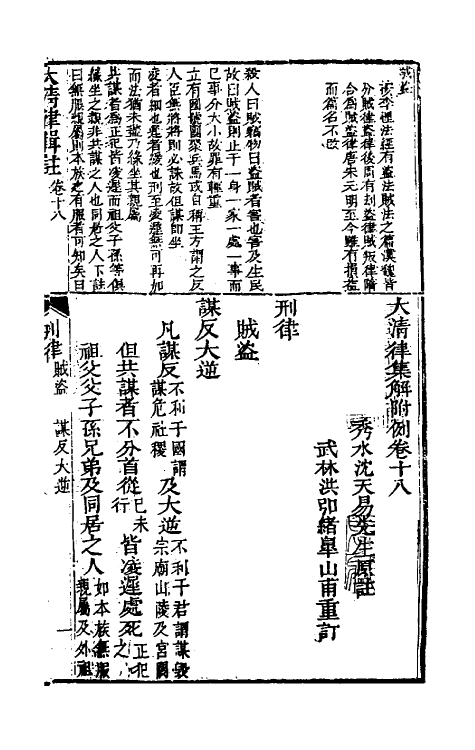 賊盜
按李悝法經有盜法賊法之篇漢魏皆
分賊盜律後周有刧盜律賊叛律隋
合為賊盜律唐宋元明至今雖有損益
而篇名不改
殺人曰賊竊物曰盜賊者害也害及生民
故曰賊盜則止于一身一家一處一事而
已事分大小故罪有輕重
立有國號團聚兵馬或自稱王方謂之反
人臣無將將則必誅故但謀即坐
凌者細也遲者緩也刑至凌遲無可再加
而法猶未盡乃緣坐其親屬
共謀者為正犯皆凌遲而祖父子孫等俱
緣坐之親非共謀之人也同居之人下註
曰無服親屬則本族之有服者可知矣曰
大清律集解附例卷十八
秀水沈天易先生原註
武林洪弘緒皋山甫重訂
刑律
賊盜
謀反大逆
凡謀反不利于國謂謀危社稷及大逆不利于君謂謀毀宗廟山陵及宮闕
但共謀者不分首從已未行皆凌遲處死正犯之
祖父父子孫兄弟及同居之人如本族無服親屬及外祖
大清律輯註 卷十八
刑律 賊盜 謀反大逆 一